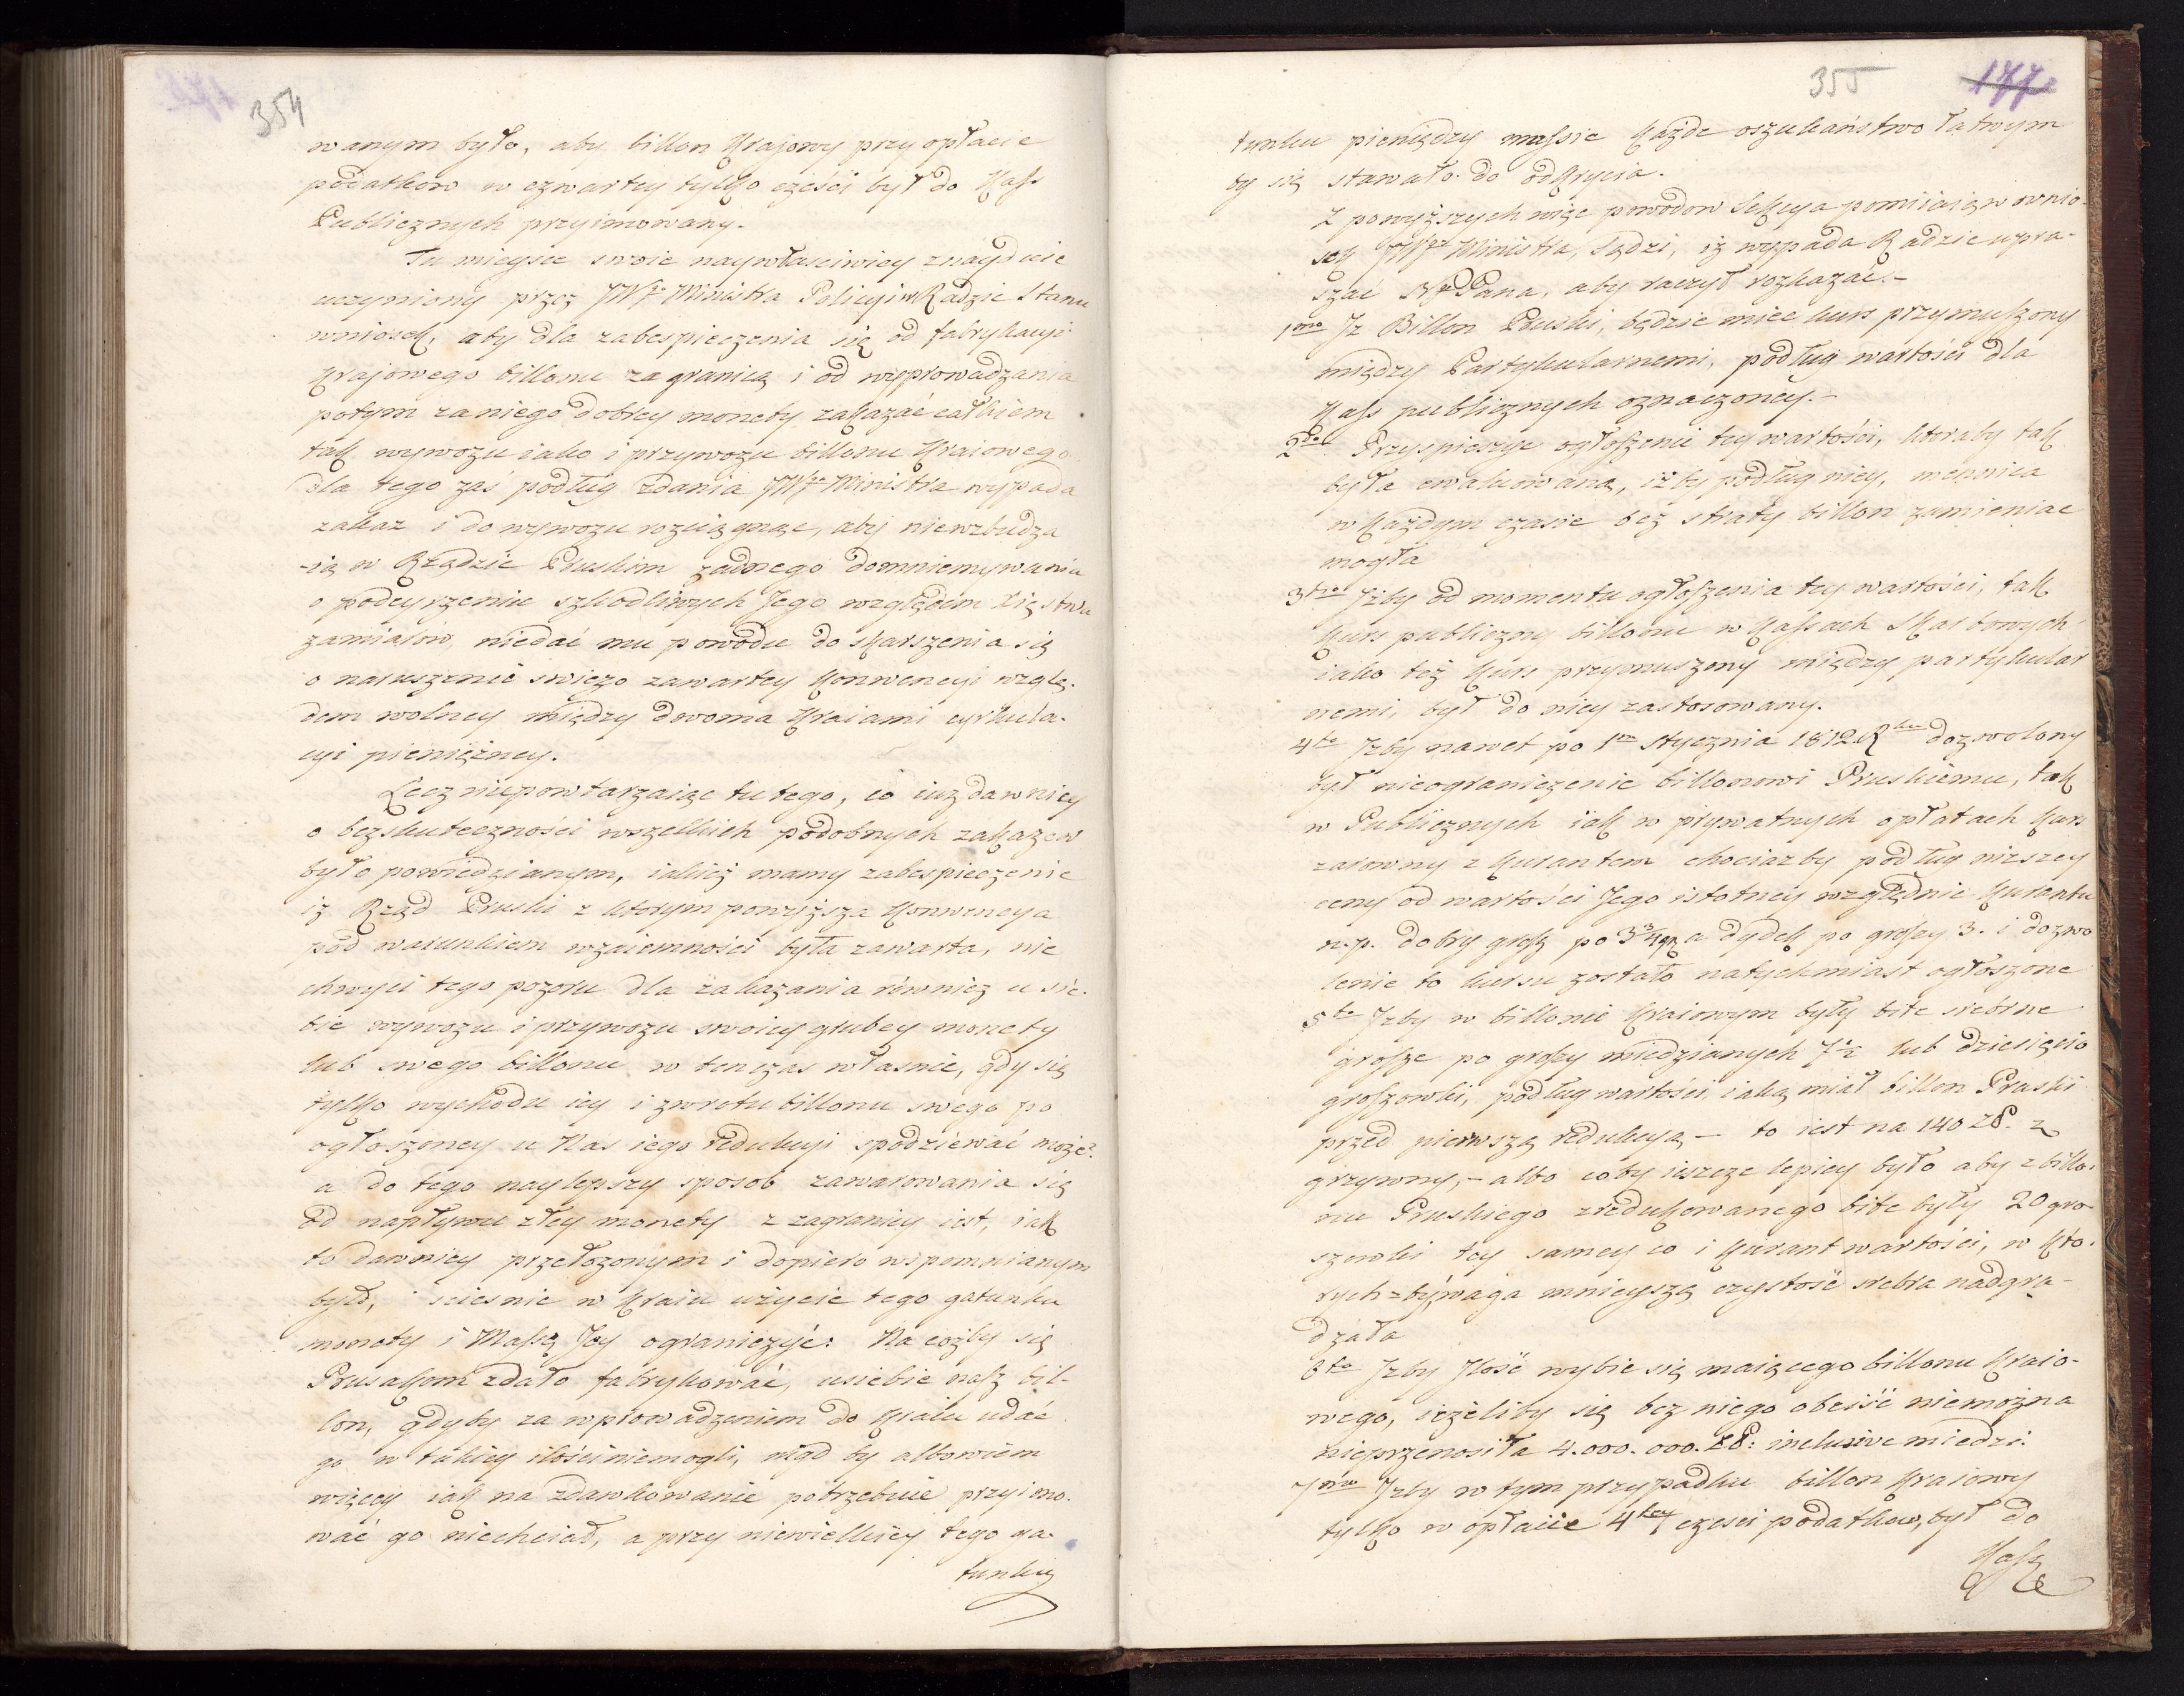 354
wanym było, aby billon Krajowy przy opłacie
podatkow w czwartey tylko części był do Kass
Publicznych przyimowany.
Tu mieysce swoie naywłasciwiey znayduie
uczyniony przez JWgo Ministra Policyi w Radzie Stanu
wniosek, aby dla zabespieczenia się od fabrykacyi
Krajowego billonu za granicą i od wyprowadzania
potym za niego dobrey monety, zakazać całkiem
tak wywozu iako i przywozu billonu Kraiowego
dla tego zaś podług zdania JWgo Ministra wypada
zakaz i do wywozu rozciągnąc, aby niewzbudza
-iąc w Rządzie Pruskim żadnego domniemywania
o podeyrzeniu szkodliwych Jego względem Xięstwa
zamiarów, niedać mu powodu do skarszenia się
o naruszenie swiezo zawartey Konwencyi wzglę-
dem wolney między dwoma Kraiami cyrkula-
cyi pieniężney.
Lecz niepowtarzaiąc tu tego, co iuz dawniey
o bezskuteczności wszelkich podobnych zakazow
było powiedzianym, iakież mamy zabespieczenie
iż Rząd Pruski z ktorym powyższa Konwencya
pod warunkiem wzaiemności była zawarta, nie
chwyci tego pozoru dla zakazania również u sie-
bie wywozu i przywozu swoiey grubey monety
lub swego billonu w tenczas własnie, gdy się
tylko wychodu iey i zwrotu billonu swego po
ogłoszoney u Nas iego redukcyi spodziewać może?
a do tego naylepszy sposob zawarowania się
od napływu złey monety z zagranicy iest, iak
to dawniey przełozonym i dopiero wspomnianym
było, scieśnic w Kraiu użycie tego gatunku
monety i Massę Jey ograniczyć: Na cożby się
Prusakom zdało fabrykować, u siebie nasz bil-
lon, gdyby za wprowadzeniem do Kraiu udać
go w takiey ilości niemogli, nigd by albowiem
więcey iak na zdawkowanie potrzebuie przyimo-
wać go niechciał, a przy niewielkiey tego ga-
tunku
355
177
tunku pieniędzy massie każde oszukaństwo łatwym
by się stawało do odkrycia.
Z powyższych więc powodow Sekcya pomiiaiąc wnio-
sek JWgo Ministra, sądzi, iż wypada Radzie upra-
szać NPana, aby raczył rozkazać.-
1mo Jż Billon Pruski, będzie miec kurs przymuszony
między Partykularnemi, podług wartości dla
Kass publicznych oznaczoney.-
2do Przyspieszyc ogłoszenie tey wartości, ktoraby tak
była ewaluowana, iżby podług niey, mennica
w każdym czasie bez straty billon zamieniac
mogła
3tio Jżby od momentu ogłoszenia tey wartości, tak
kurs publiczny billonu w Kassach Skarbowych
iako też kurs przymuszony między partykular
nemi, był do niey zastosowany.
4to Jżby nawet po 1m Stycznia 1812 Rku dozwolony
był nieograniczenie billonowi Pruskiemu, tak
w Publicznych iak w prywatnych opłatach kurs
zarowny z kurantem chociazby podług nizszey
ceny od wartości Jego istotney względnie kurantu
n.p. dobry grosz po 3¾ gr a dydek po groszy 3. i dozwo
lenie to kursu zostało natychmiast ogłoszone
5to Jżby w billonie Kraiowym były bite srebrne
grosze po groszy miedzianych 7½ lub dziesięcio
groszowki, podług wartości iaką miał billon Pruski
przed pierwszą redukcyą - to iest na 140 zł. z
grzywny,- albo coby ieszcze lepiey było aby z billo-
nu Pruskiego zredukowanego bite były 20 gro-
szowki tey samey co i kurant wartości, w któ-
rych zbywaga mnieyszą czystość srebra nadgra-
dzała
6to Jżby Jlość wybic się maiącego billonu Kraio-
wego, ieżeliby się bez niego obeiść niemożna
nieprzenosiła 4.000.000. zł: inclusive miedzi.
7mo Jżby w tym przypadku billon Kraiowy
tylko w opłacie 4tey części podatkow, był do
Kass